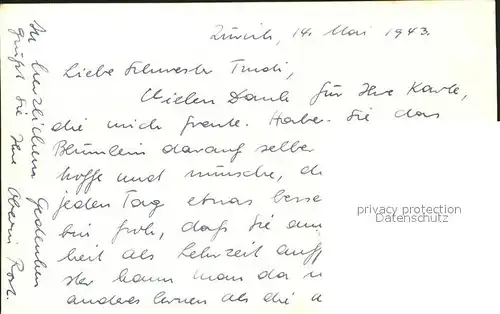 Zürich, 14. Mai 1943.
Liebe Schwester Trudi,
Vielen Dank für Ihre Karte,
die mich freute. Haben Sie das
Blümlein darauf selber
hoffe und wünsche, d
jeden Tag etwas besse
bin froh, daß Sie
heit als Lehrzeit auff
kann man da
anderes lernen als die
In herzlichem Gedenken
grüßt Sie Ihre Oberin
privacy protection
Datenschutz